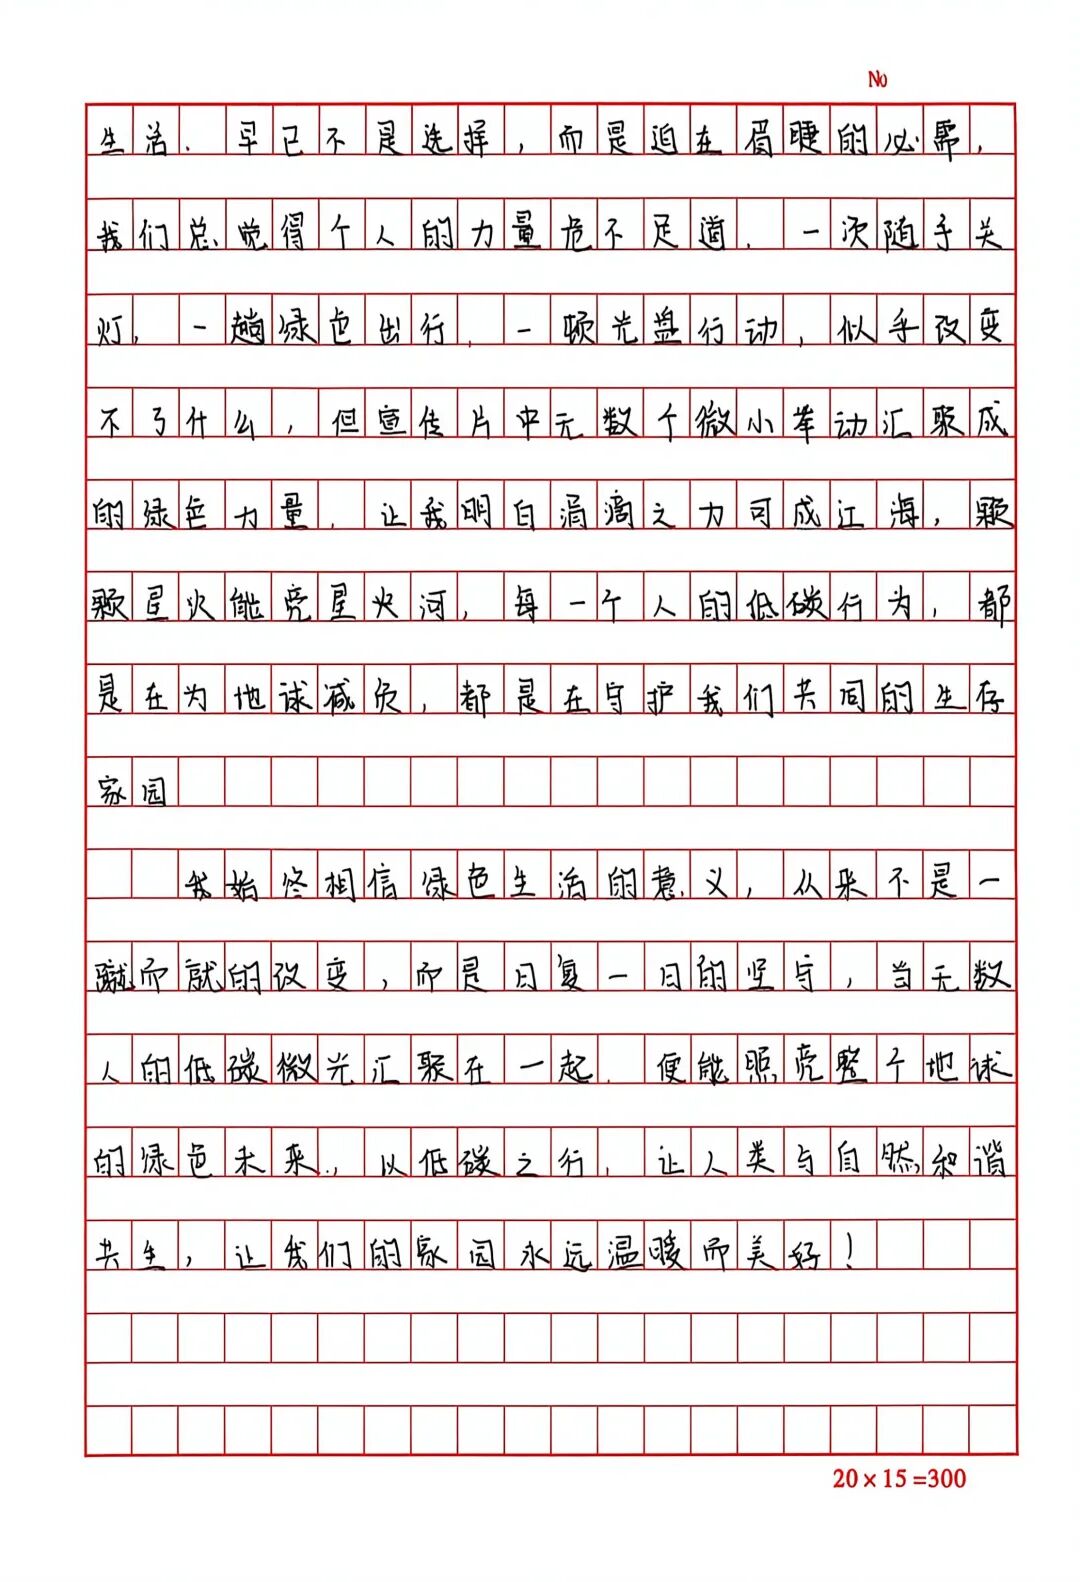 No
生活.早已不是选择,而是迫在眉睫的必需,
我们总觉得个人的力量危不足道.一次随手关
灯,一趟绿色出行,一顿光盘行动,似乎改变
不了什么,但宣传片中无数个微小举动汇聚成
的绿色力量,让我明白涓滴之力可成江海,颗
颗星火能亮星火河,每一个人的低碳行为,都
是在为地球减负,都是在守护我们共同的生存
家园
我始终相信绿色生活的意义,从来不是一
蹴而就的改变,而是日复一日的坚守,当无数
人的低碳微光汇聚在一起.便能照亮整个地球
的绿色未来.,以低碳之行,让人类与自然和谐
共生,让我们的家园永远温暖而美好!
20×15=300